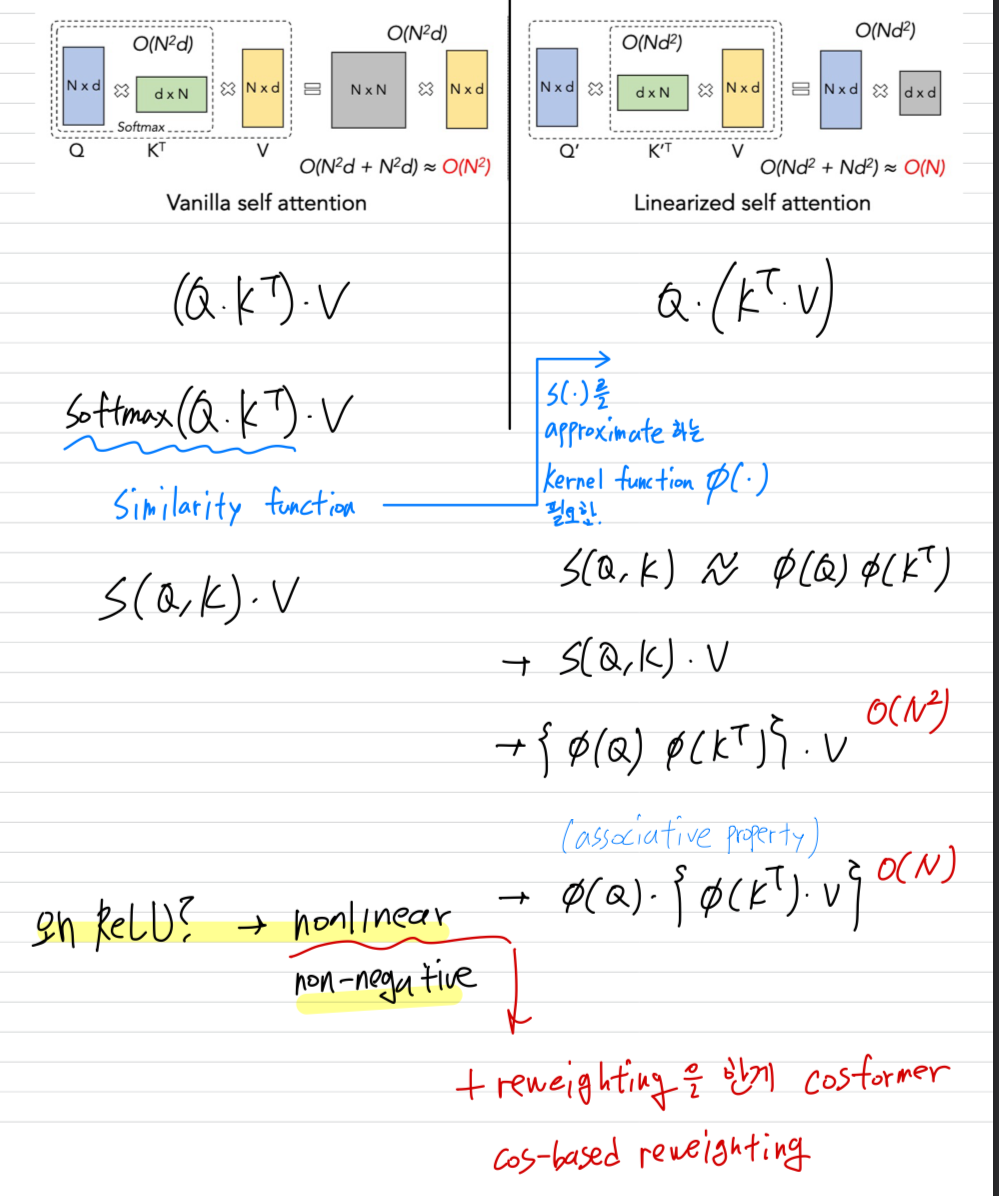 O(N²d)
O(N²d)
N x d
d x N
N x d
N x N
N x d
Softmax
Q
Kᵀ
V
O(N²d + N²d) ≈ O(N²)
Vanilla self attention
O(Nd²)
O(Nd²)
N x d
d x N
N x d
N x d
d x d
Q'
K'ᵀ
V
O(Nd² + Nd²) ≈ O(N)
Linearized self attention
(Q·Kᵀ)·V
Q·(Kᵀ·V)
Softmax(Q·Kᵀ)·V
Similarity function
S(Q,K)·V
S(·)를
approximate 하는
kernel function ϕ(·)
필요함.
S(Q,K) ≈ ϕ(Q) ϕ(Kᵀ)
→ S(Q,K)·V
→ { ϕ(Q) ϕ(Kᵀ)}·V O(N²)
(associative property)
→ ϕ(Q)·{ ϕ(Kᵀ)·V} O(N)
왜 ReLU? → nonlinear
non-negative
+ reweighting을 한게 cosformer
cos-based reweighting